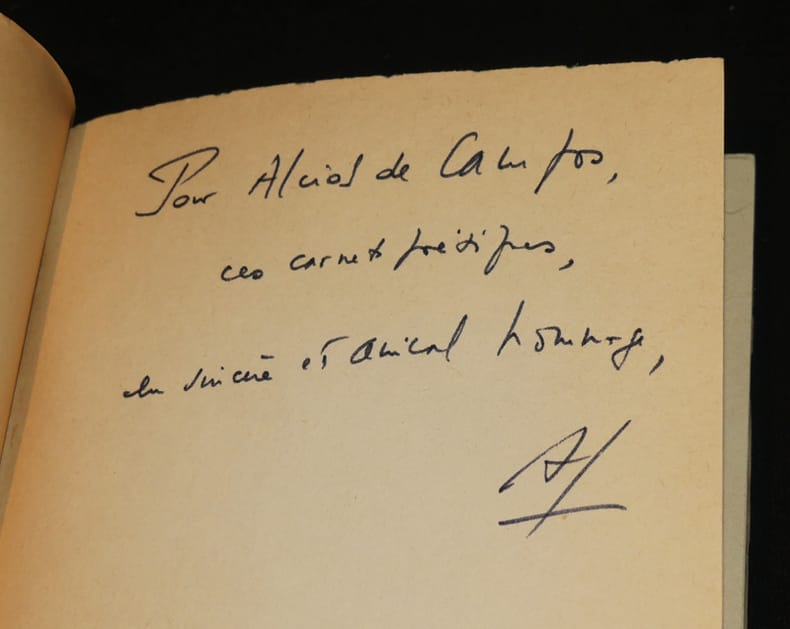 Pour Alcios de Campos,
ces carnets poétiques,
en sincère et amical hommage,